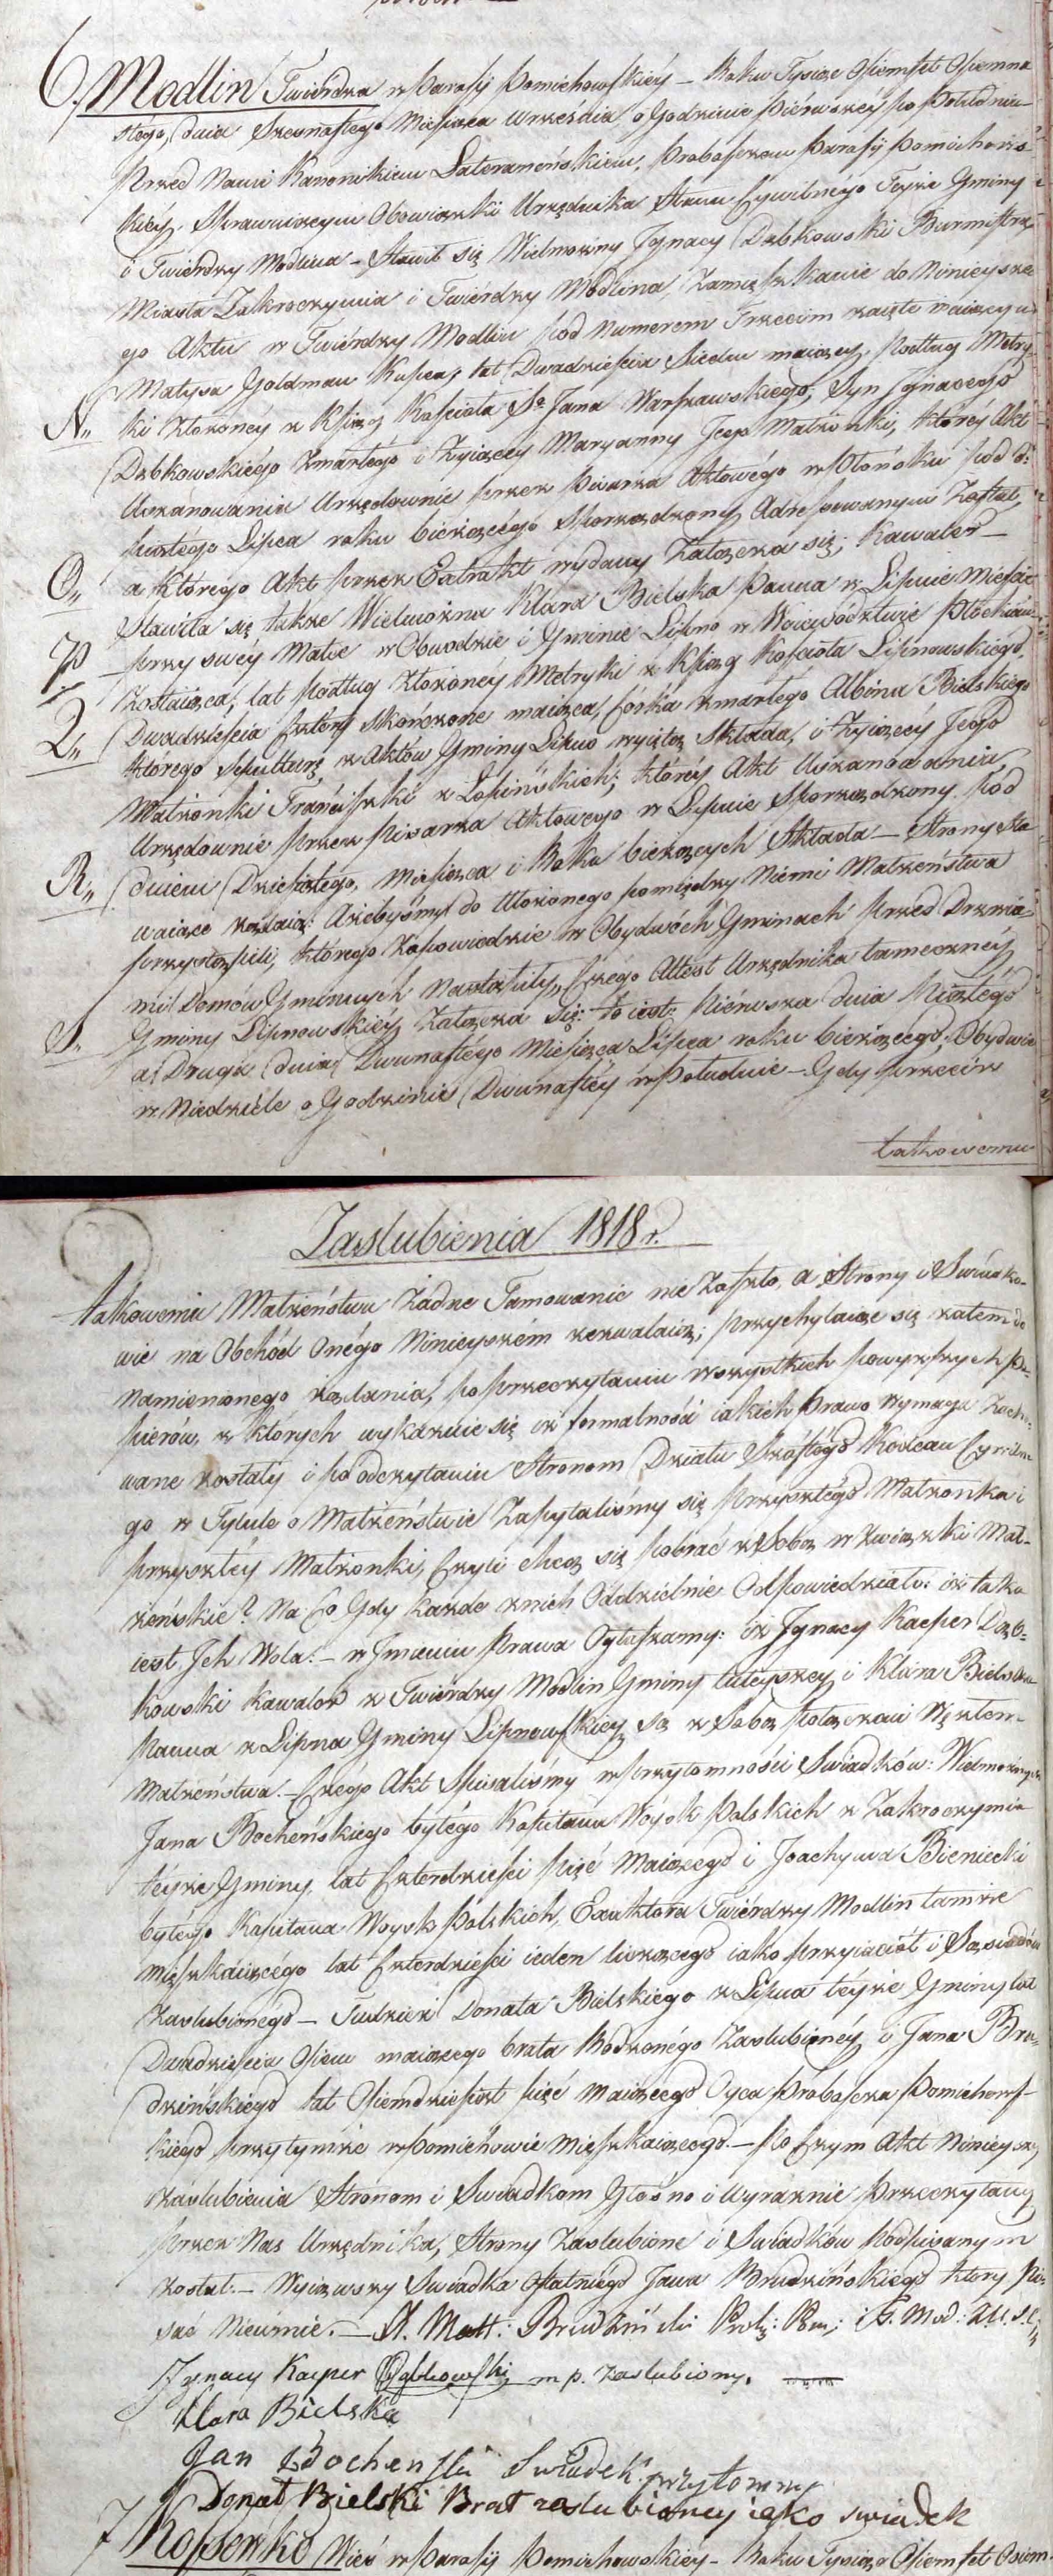 6. Modlin Twierdza w Parafij Pomiechowskiey – Roku Tysiąc Ośiemset Ośmna
stego, dnia Szesnastego Miesiąca Września o Godzinie Piérwszéy po Południu
Przed Nami Kanonikiem Lateraneńskiem, Proboszczem Parafij Pomiechows
kiéy Sprawuiącym Obowiązki Urzędnika Stanu Cywilnégo Teyże Gminy
i Twierdzy Modlina – Stawił się Wielmożny Jgnacy Dąbkowski Burmistrz
Miasta Zakroczymia i Twiérdzy Modlina, Zamięszkanie do Ninieysze
go Aktu w Twiérdzy Modlin pod Numerem Trzecim zaięte maiący u
Matysa Goldman Kupca, lat Dwadzieścia Siedm maiący, podług Metry
N„ ki złożonéy z Xsiąg Kościoła Sº Jana Warszawskiego, Syn Jgnacego
Dąbkowskiégo Zmarłégo i Żyiącey Maryanny Jego Małżonki, któréy Akt
Uszanowania Urzędownie przez Pisarza Aktowégo w Płońsku pod d:
piątégo Lipca roku bieżącégo Sporządzony, Adressowanym Został,
O„ a Którego Akt przez Extrakt wydany Załącza się; Kawaler –
Stawiła się także Wielmożna Klara Bielska Panna w Lipnie Mieście
P przy swéy Matce w Obwodzie i Gminie Lipno w Woiewództwie Płockiém
Zostaiąca, lat podług złożonéy Metryki z Xsiąg Kościoła Lipnowskiégo,
Q„ Dwadzieścia Cztery skończone maiąca, Córka zmarłego Albina Bielskiégo
którego Sepulturę z Aktów Gminy Lipno wyiętą Składa, i Żyiącéy Jego
Małżonki Franciszki z Łopińskich; któréy Akt Uszanowania,
Urzędownie przez Pisarza Aktowego w Lipnie Sporządzony pod
R„ dniem Dziesiątego, Miesiąca i Roku bieżących Składa – Strony Sta
waiące żądaią: Ażebyśmy do Ułożonego pomiędzy Niemi Małżeństwa
przystąpili, którego Zapowiedzie w Obydwóch Gminach przed Drzwia
mi Domów Gminnych Nastąpiły, Czégo Attest Urzędnika tameczney
S„ Gminy Lipnowskiéy Załącza się: to iest: Piérwsza dnia Piątégo
a Druga dnia Dwunastégo Miesiąca Lipca roku bieżącego, Obydwie
w Niedziéle o Godzinie Dwunastéy w Południe – Gdy przeciw
takowemu
Zaslubienia 1818 r.
takowemu Małżeństwu Żadne Tamowanie nie Zaszło, a Strony i Swiadko
wie na Obchód Onégo Ninieyszém zezwalaią; przychylaiąc się zatem do
namienionego żądania, po przeczytaniu wszystkich powyższych Pa
pierów, z których wykazuie się iż formalności iakich Prawo wymaga Zacho
wane zostały i po odczytaniu Stronom Działu Szóstégo Kodexu Cywilne
go w Tytule o Małżeństwie Zapytaliśmy się przyszłégo Małżonka i
przyszłéy Małżonki, Czyli chcą się pobrać z Sobą w Związki Mał-
żeńskie? Na Co Gdy każde z nich Oddzielnie Odpowiedziało: iż taka
iest Jch Wola. – w Jmieniu Prawa Ogłaszamy: iż Jgnacy Kacper Dąb-
kowski Kawaler z Twierdzy Modlin Gminy tuteyszey, i Klara Bielska
Panna z Lipna Gminy Lipnowskiey, są z Sobą połączeni Węzłem
Małżeństwa. – Czégo Akt Spisaliśmy w Przytomności Swiadków: Wielmożnych
Jana Bocheńskiego byłégo Kapitana Woysk Polskich z Zakroczymia
téyże Gminy lat Czterdzieści pięć maiącego i Joachyma Bieniecki
byłégo Kapitana Woysk Polskich, Exaktora Twiérdzy Modlin tamże
mięszkaiącégo lat Czterdzieści ieden liczącego iako przyiaciół i Sąsiadów
Zaslubionégo – Tudzież Donata Bielskiego z Lipna téyże Gminy lat
Dwadzieścia Ośiem maiącego brata Rodzonégo Zaslubionéy, i Jana Bru-
dzińskiego lat Ośiemdziesiąt pięć maiącego Oyca Proboszcza Pomichows-
kiego przytymże w Pomichowie mięszkaiącego. – Po Czym Akt Ninieyszy
Zaslubienia Stronom i Swiadkom Głośno i Wyraźnie Przeczytany
przez Nas Urzędnika, Strony Zaslubione i Swiadków Podpisanym
został. – Wyiąwszy Swiadka Ostatniégo Jana Brudzińskiego który Pi-
sać Nieumie. – X. Matt: Brudziński Prob: Pom; i T. Mod: U. S. C.
Jgnacy Kacper Dąbkowski m p. Zaslubiony.
Klara Bielska
Jan Bochenski Swiadek przytomny
Donat Bielski Brat zaslubioney iako swiadek
7 Kossewko Wieś w Parafij Pomiechowskiey – Roku Tysiąc Ośiemset Ośiem